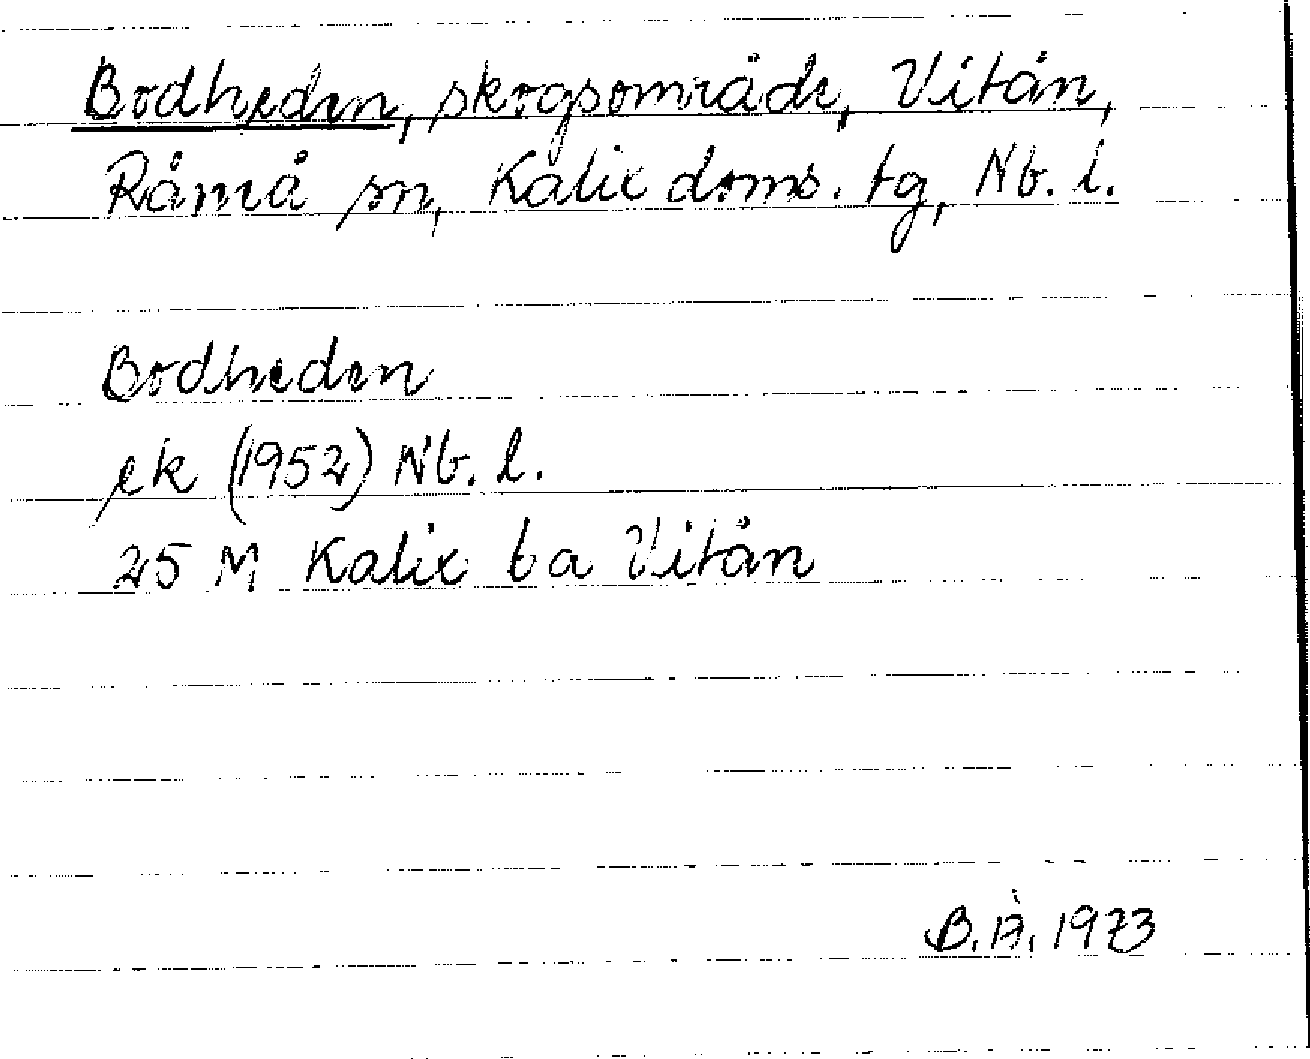 Bodheden, skogsområde, Vitån,
Råneå sn, Kalix doms. tg, Nb. l.
Bodheden
ek (1952) Nb. l.
25 M Kalix ba Vitån
B.Å. 1973